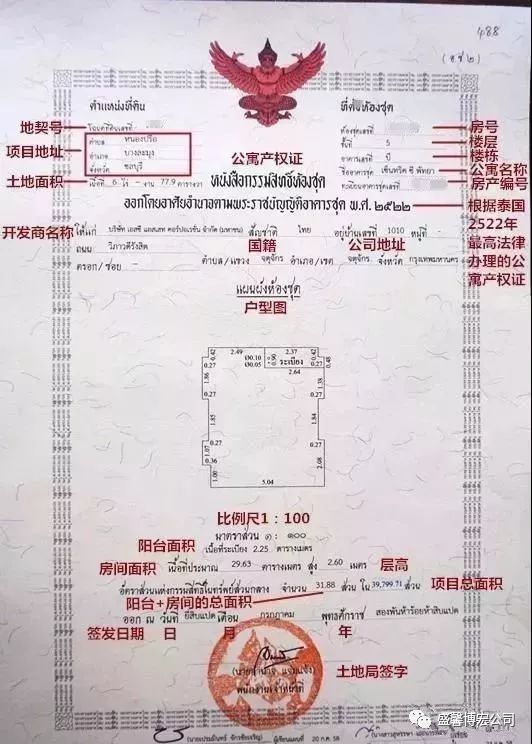 488
(อ.ช.๒)
ตำแหน่งที่ดิน
ที่ตั้งห้องชุด
地契号
โฉนดที่ดินเลขที่
ห้องชุดเลขที่
房号
项目地址
ตำบล หนองปรือ
ชั้นที่ 5
楼层
อำเภอ บางละมุง
公寓产权证
อาคารเลขที่ ซี
楼栋
จังหวัด ชลบุรี
ชื่ออาคารชุด เซ็นทริค ซี พัทยา
公寓名称
土地面积
เนื้อที่ 6 ไร่ - งาน 77.9 ตารางวา
ทะเบียนอาคารชุดเลขที่
房产编号
หนังสือกรรมสิทธิ์ห้องชุด
ออกโดยอาศัยอำนาจตามพระราชบัญญัติอาคารชุด พ.ศ. ๒๕๒๒
根据泰国
2522年
最高法律
办理的公
寓产权证
开发商名称
ให้แก่ บริษัท เอสซี แอสเสท คอร์ปอเรชั่น จำกัด (มหาชน) สัญชาติ ไทย อยู่บ้านเลขที่ 1010 หมู่ที่ -
国籍
公司地址
ถนน วิภาวดีรังสิต
ตรอก/ซอย - ตำบล/แขวง จตุจักร อำเภอ/เขต จตุจักร จังหวัด กรุงเทพมหานคร
แผนผังห้องชุด
户型图
0.42 2.49 Ø0.10 Ø0.05 0.90 2.37 0.42
ระเบียง
0.27 2.64 0.27 0.48
1.86 1.38
0.27 0.27
1.85 1.84
0.27 0.27
1.07
0.36 2.08
1.00 5.04
比例尺1：100
มาตราส่วน ๑: ๑๐๐
阳台面积
เนื้อที่ระเบียง 2.25 ตารางเมตร
房间面积
เนื้อที่ประมาณ 29.63 ตารางเมตร สูง 2.60 เมตร
层高
อัตราส่วนแห่งกรรมสิทธิ์ในทรัพย์ส่วนกลาง จำนวน 31.88 ส่วน ใน 39,799.71 ส่วน
项目总面积
阳台+房间的总面积
ออก ณ วันที่ ยี่สิบแปด เดือน กรกฎาคม พุทธศักราช สองพันห้าร้อยห้าสิบแปด
签发日期 日 月 年
土地局签字
พนักงานเจ้าหน้าที่
ผู้เขียนแผนที่ 20 ก.ค. 58
盛馨博宏公司